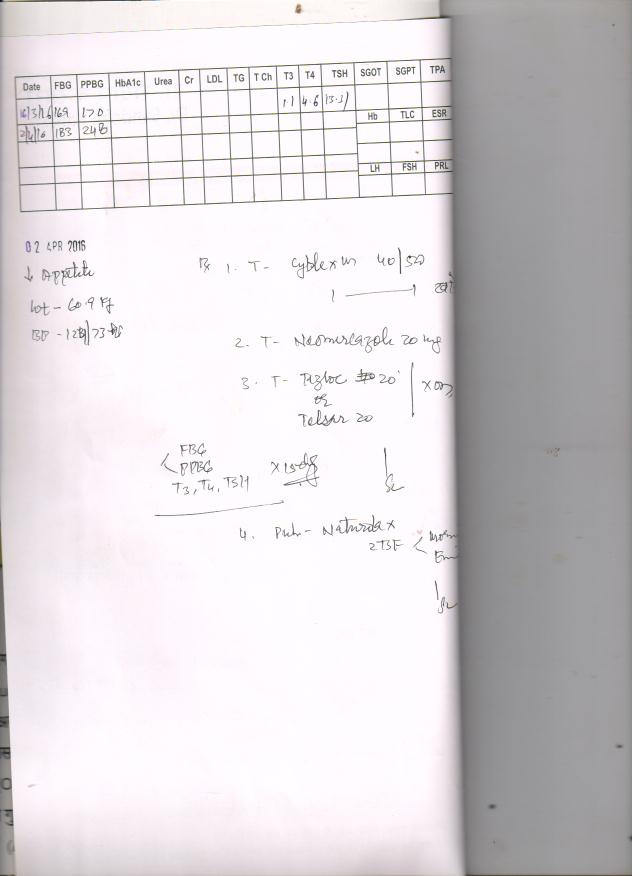 Date FBG PPBG HbA1c Urea Cr LDL TG T Ch T3 T4 TSH SGOT SGPT TPA
16/3/16 169 170 1.1 4.6 13.31
Hb TLC ESR
2/4/16 183 248
LH FSH PRL
02 APR 2016
↓ Appetite
Wt - 60.9 Kg
BP -
Rx 1. T- 40/500
1 — 1
2. T- Neomercazole 20 mg
3. T- Tazloc 20
or
Telsar 20
FBG
PPBG
T3, T4, TSH
4. Pulv- Naturolax
2TSF